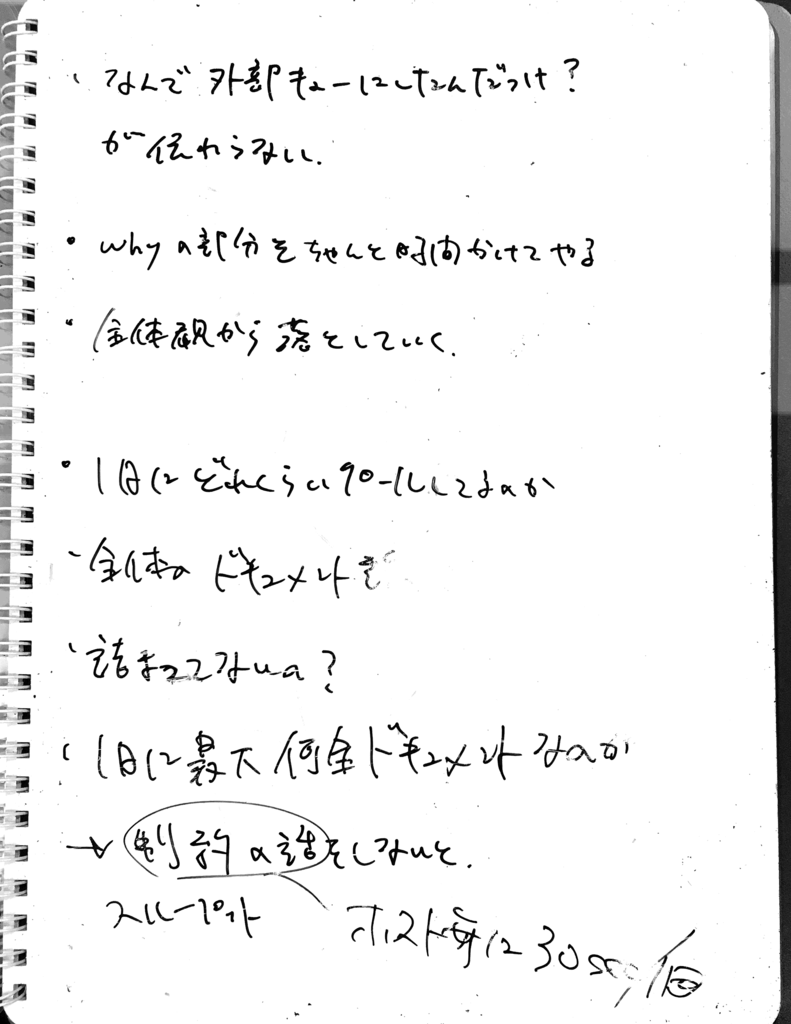 ・なんで外部キューにしたんだっけ?
が伝わらない.
・whyの部分をちゃんと時間かけてやる
・全体観から落としていく.
・1日にどれくらいクロールしてるのか
・全体のドキュメントを
・詰まってないの?
・1日に最大何全ドキュメントなのか
→ 制約の話をしないと.
スループット
ホスト毎に30sec/個